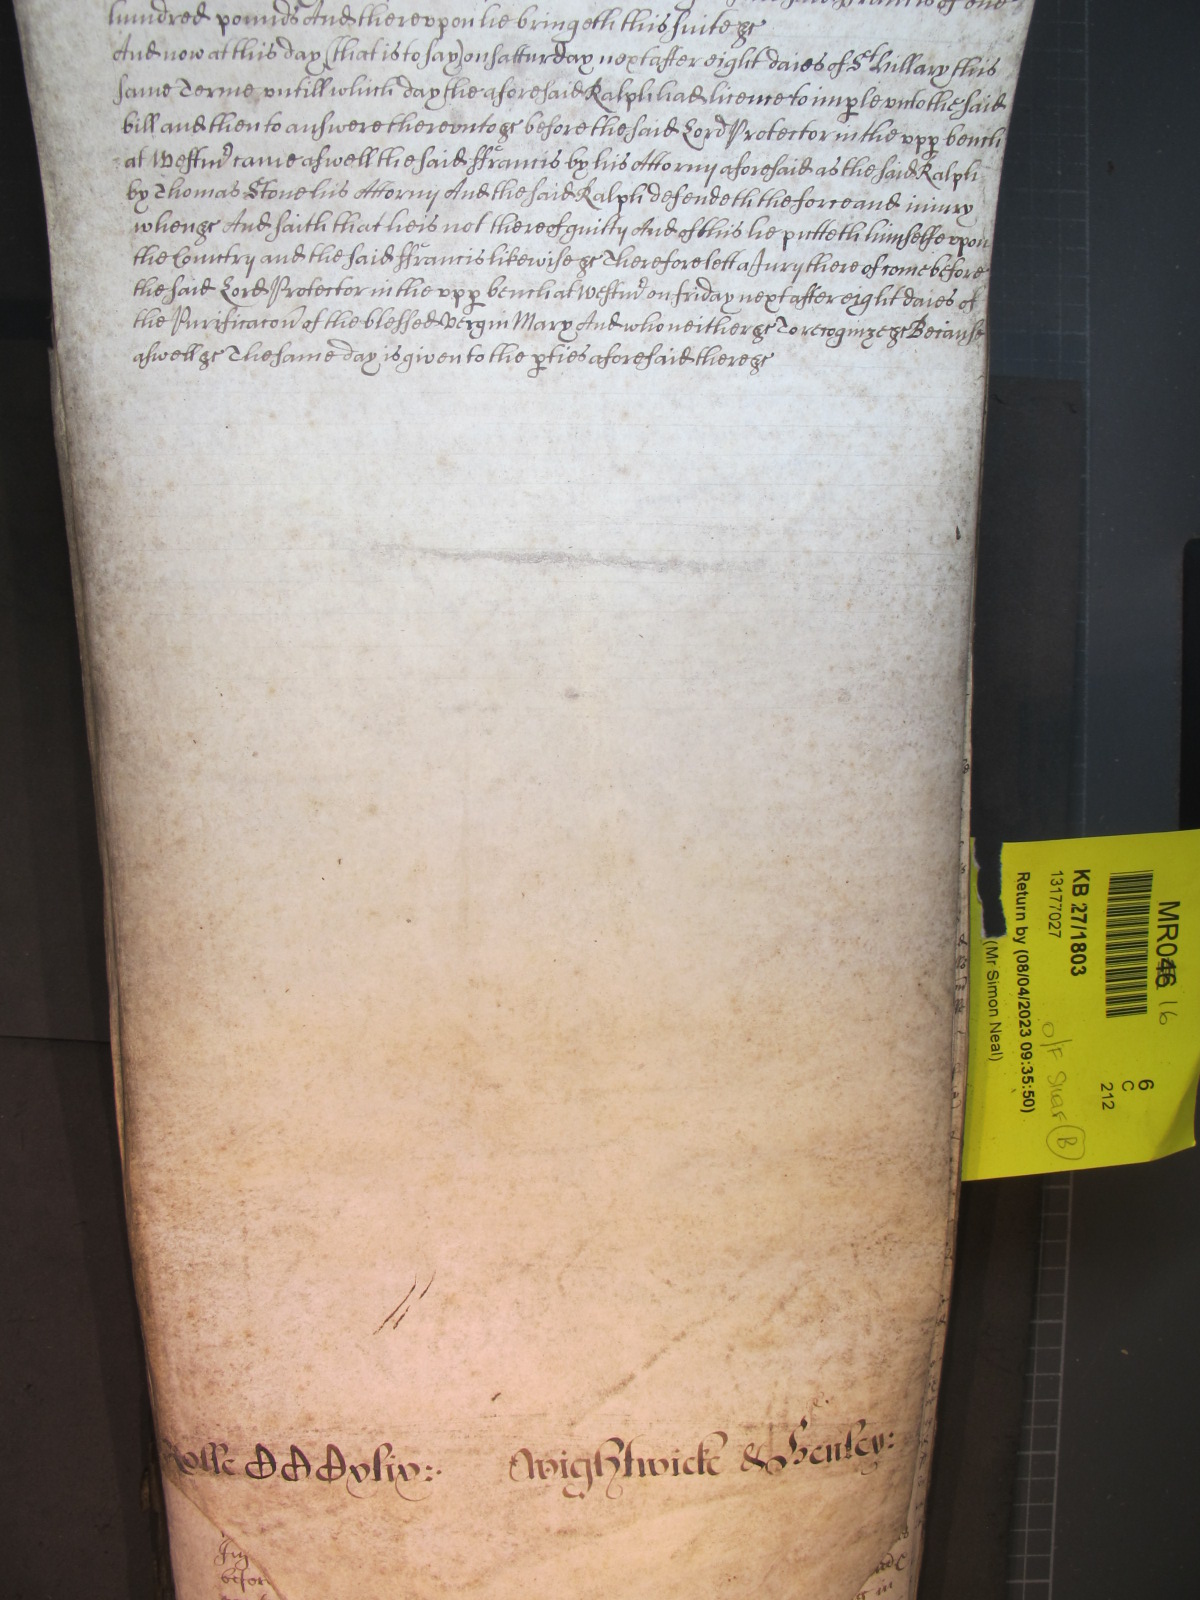 hundred pounds And thereupon he bringeth this suite &c
And now at this day (that is to say) on satturday next after eight daies of St Hillary this
same Terme untill which day the aforesaid Ralph had licence to imple unto the said
bill and then to answere thereunto &c before the said Lord Protector in the upp bench
at Westmr came aswell the said ffrancis by his Attorny aforesaid as the said Ralph
by Thomas Stone his Attorny And the said Ralph defendeth the force and iniury
when &c And saith that he is not thereof guilty And of this he putteth himselfe upon
the Country and the said ffrancis likewise &c Therefore lett a Jury thereof come before
the said Lord Protector in the upp bench at Westmr on friday next after eight daies of
the Purificacon of the blessed Vergin Mary And who neither &c To recognize &c Because
aswell &c The same day is given to the pties aforesaid there &c
Rolle DDDxlix:. Wightwicke & Henley:
Jury
before
KB 27/1803
13177027
Return by (08/04/2023 09:35:50)
(Mr Simon Neal)
MR046 16
6
C
212
O/F
B